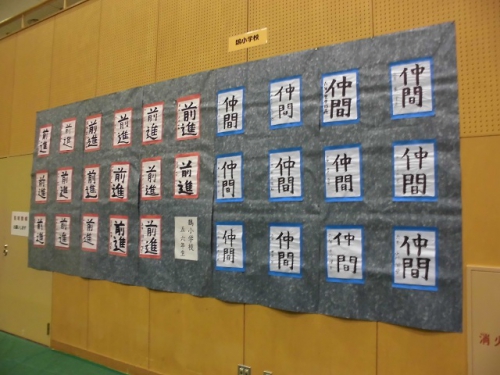 小学校
前進 前進 前進 前進 前進 前進 仲間 仲間 仲間 仲間
前進 前進 前進 前進 前進 前進 仲間 仲間 仲間 仲間
前進 前進 前進 前進 前進 仲間 仲間 仲間 仲間
小学校
六年生
消火